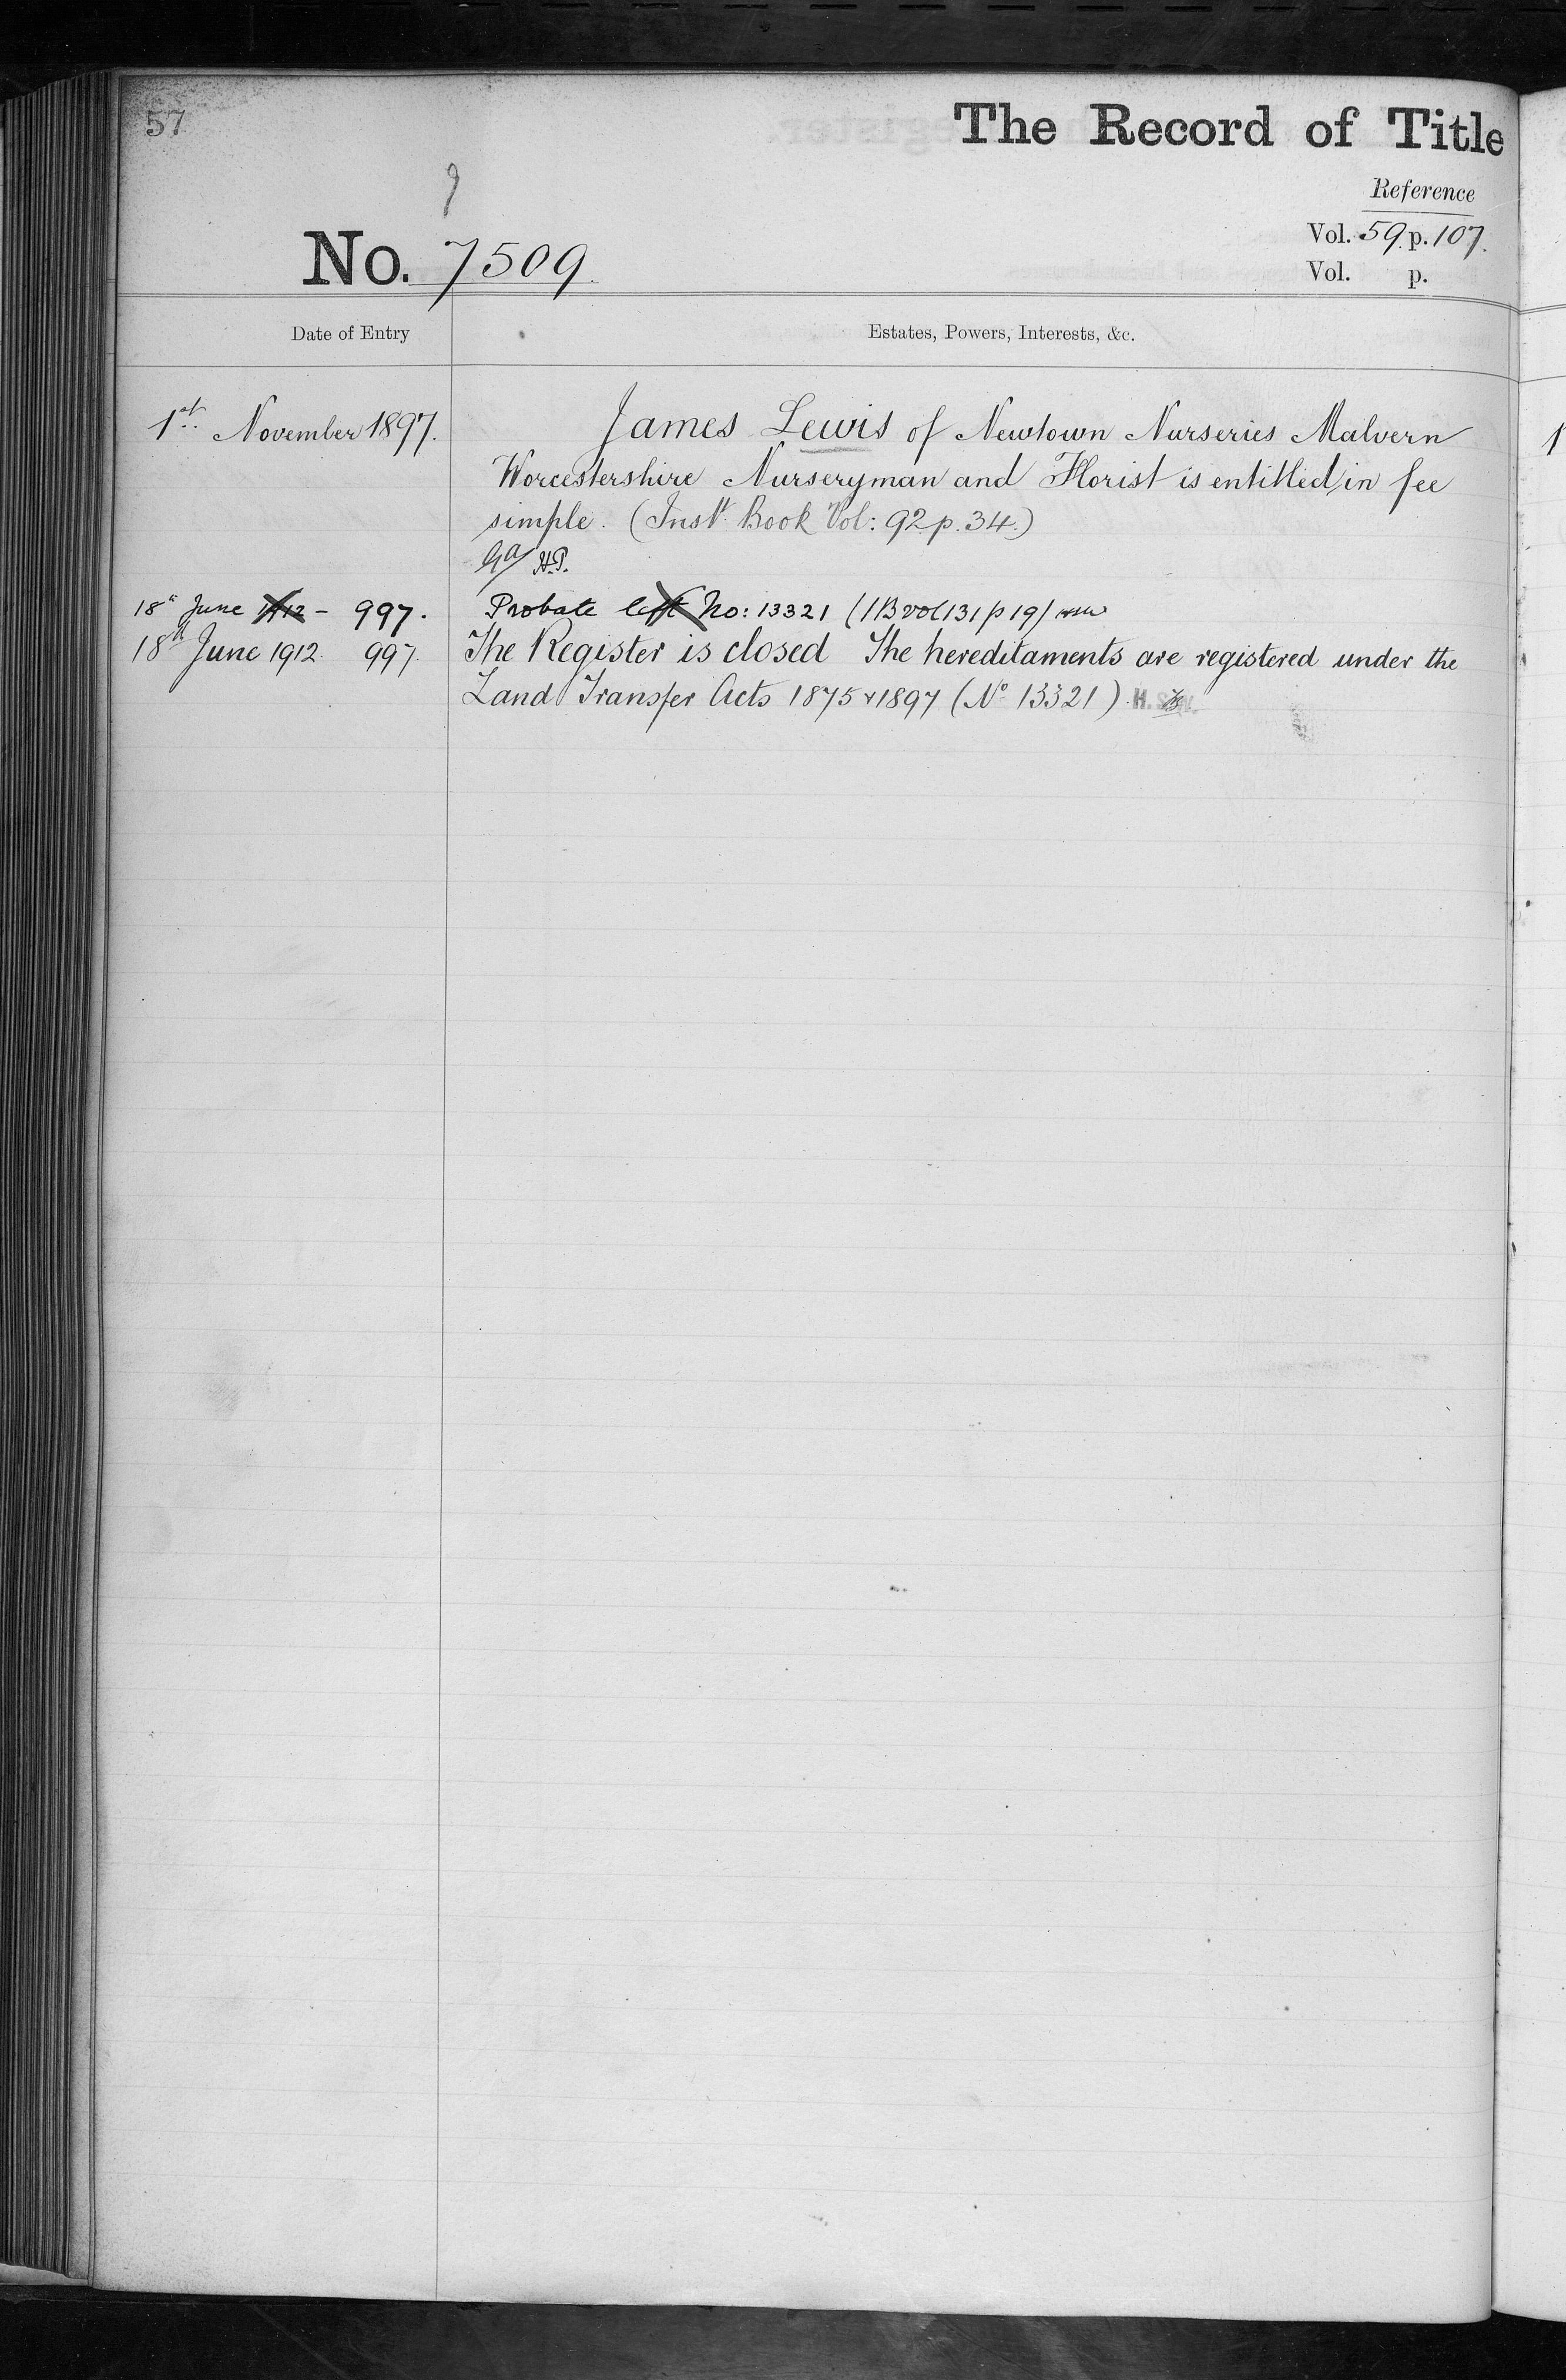 57
The Record of Title
Reference
Vol. 59. p. 107.
Vol. p.
No. 7509.
Date of Entry
Estates, Powers, Interests, &c.
1st November 1897.
James Lewis of Newtown Nurseries Malvern
Worcestershire Nurseryman and Florist is entitled in fee
simple. (Inst. Book Vol: 92 p. 34.)
H.P.
18th June 1912 - 997. Probate left No: 13321 (IB vol 131 p 19)
18th June 1912. 997. The Register is closed The hereditaments are registered under the
Land Transfer Acts 1875 & 1897 (No 13321).